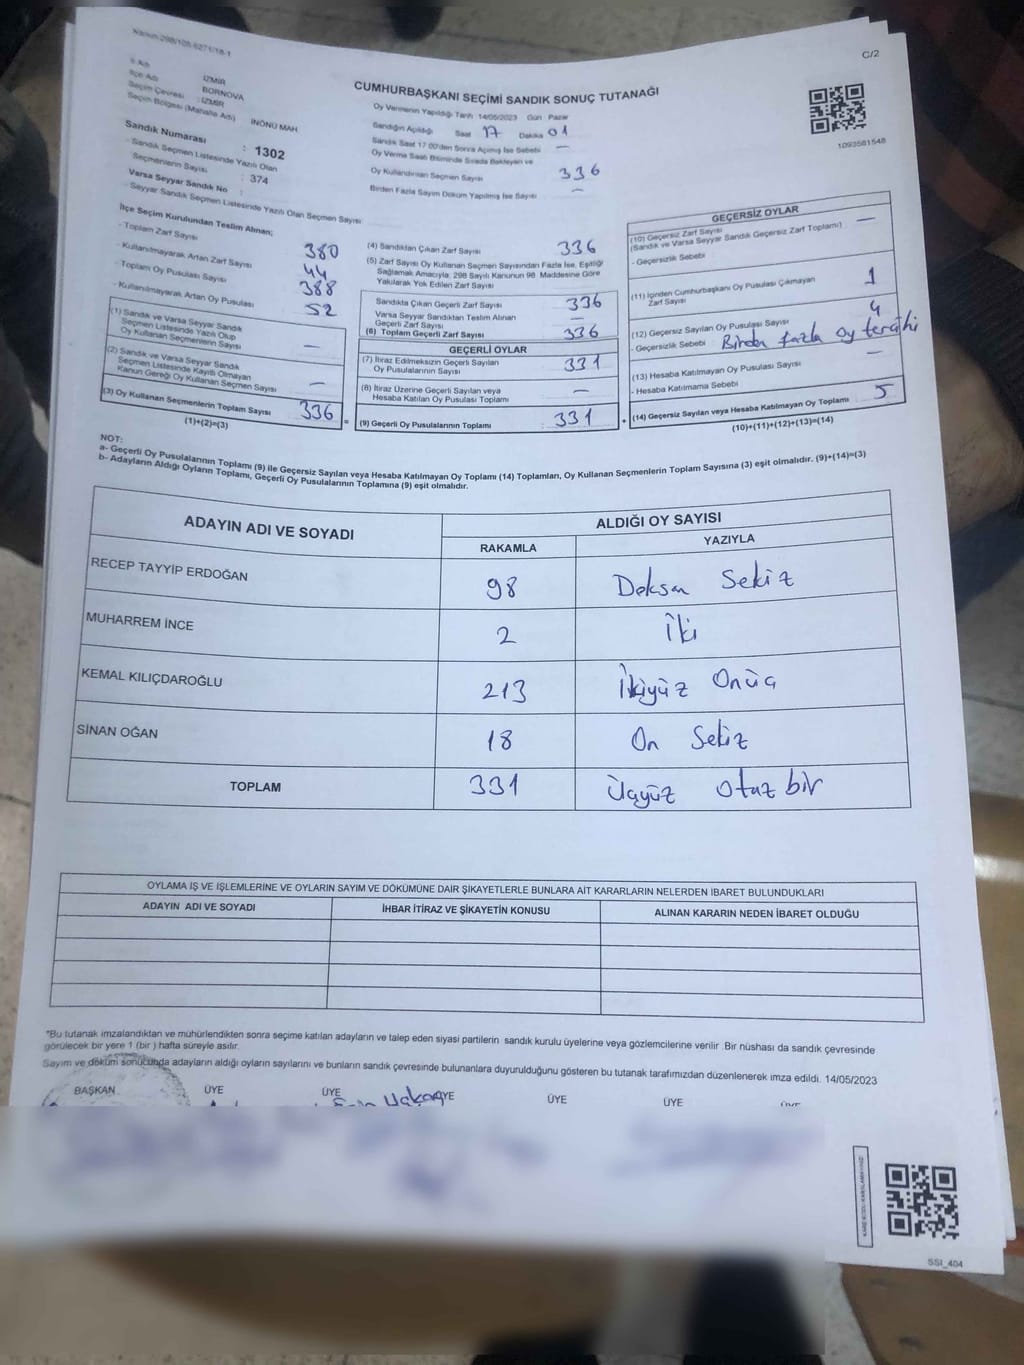 Kanun:298/105-6271/18-1
C/2
İl Adı : İZMİR
İlçe Adı : BORNOVA
Seçim Çevresi : İZMİR
Seçim Bölgesi (Mahalle Adı) : İNÖNÜ MAH.
CUMHURBAŞKANI SEÇİMİ SANDIK SONUÇ TUTANAĞI
1093581548
Sandık Numarası : 1302
- Sandık Seçmen Listesinde Yazılı Olan
Seçmenlerin Sayısı : 374
Varsa Seyyar Sandık No :
- Seyyar Sandık Seçmen Listesinde Yazılı Olan Seçmen Sayısı:
Oy Vermenin Yapıldığı Tarih 14/05/2023 Gün : Pazar
Sandığın Açıldığı Saat 17 Dakika 01
Sandık Saat 17:00'den Sonra Açılmış İse Sebebi —
Oy Verme Saati Bitiminde Sırada Bekleyen ve
Oy Kullandırılan Seçmen Sayısı 336
Birden Fazla Sayım Döküm Yapılmış İse Sayısı —
İlçe Seçim Kurulundan Teslim Alınan;
- Toplam Zarf Sayısı 380
- Kullanılmayarak Artan Zarf Sayısı 44
- Toplam Oy Pusulası Sayısı 388
- Kullanılmayarak Artan Oy Pusulası 52
(1) Sandık ve Varsa Seyyar Sandık
Seçmen Listesinde Yazılı Olup
Oy Kullanan Seçmenlerin Sayısı —
(2) Sandık ve Varsa Seyyar Sandık
Seçmen Listesinde Kayıtlı Olmayan
Kanun Gereği Oy Kullanan Seçmen Sayısı —
(3) Oy Kullanan Seçmenlerin Toplam Sayısı 336 =
(1)+(2)=(3)
(4) Sandıktan Çıkan Zarf Sayısı 336
(5) Zarf Sayısı Oy Kullanan Seçmen Sayısından Fazla İse, Eşitliği
Sağlamak Amacıyla, 298 Sayılı Kanunun 98. Maddesine Göre
Yakılarak Yok Edilen Zarf Sayısı
Sandıkta Çıkan Geçerli Zarf Sayısı 336
Varsa Seyyar Sandıktan Teslim Alınan
Geçerli Zarf Sayısı —
(6) Toplam Geçerli Zarf Sayısı 336
GEÇERLİ OYLAR
(7) İtiraz Edilmeksizin Geçerli Sayılan
Oy Pusulalarının Sayısı : 331
(8) İtiraz Üzerine Geçerli Sayılan veya
Hesaba Katılan Oy Pusulası Toplamı : —
(9) Geçerli Oy Pusulalarının Toplamı : 331 +
GEÇERSİZ OYLAR
(10) Geçersiz Zarf Sayısı
(Sandık ve Varsa Seyyar Sandık Geçersiz Zarf Toplamı) —
- Geçersizlik Sebebi
(11) İçinden Cumhurbaşkanı Oy Pusulası Çıkmayan
Zarf Sayısı 1
(12) Geçersiz Sayılan Oy Pusulası Sayısı 4
- Geçersizlik Sebebi Birden fazla oy tercihi
(13) Hesaba Katılmayan Oy Pusulası Sayısı —
- Hesaba Katılmama Sebebi
(14) Geçersiz Sayılan veya Hesaba Katılmayan Oy Toplamı : 5
(10)+(11)+(12)+(13)=(14)
NOT:
a- Geçerli Oy Pusulalarının Toplamı (9) ile Geçersiz Sayılan veya Hesaba Katılmayan Oy Toplamı (14) Toplamları, Oy Kullanan Seçmenlerin Toplam Sayısına (3) eşit olmalıdır. (9)+(14)=(3)
b- Adayların Aldığı Oyların Toplamı, Geçerli Oy Pusulalarının Toplamına (9) eşit olmalıdır.
ADAYIN ADI VE SOYADI ALDIĞI OY SAYISI
RAKAMLA YAZIYLA
RECEP TAYYİP ERDOĞAN 98 Doksan Sekiz
MUHARREM İNCE 2 İki
KEMAL KILIÇDAROĞLU 213 İkiyüz Onüç
SİNAN OĞAN 18 On Sekiz
TOPLAM 331 Üçyüz Otuz bir
OYLAMA İŞ VE İŞLEMLERİNE VE OYLARIN SAYIM VE DÖKÜMÜNE DAİR ŞİKAYETLERLE BUNLARA AİT KARARLARIN NELERDEN İBARET BULUNDUKLARI
ADAYIN ADI VE SOYADI İHBAR İTİRAZ VE ŞİKAYETİN KONUSU ALINAN KARARIN NEDEN İBARET OLDUĞU
*Bu tutanak imzalandıktan ve mühürlendikten sonra seçime katılan adayların ve talep eden siyasi partilerin sandık kurulu üyelerine veya gözlemcilerine verilir .Bir nüshası da sandık çevresinde
görülecek bir yere 1 (bir ) hafta süreyle asılır.
Sayım ve döküm sonucunda adayların aldığı oyların sayılarını ve bunların sandık çevresinde bulunanlara duyurulduğunu gösteren bu tutanak tarafımızdan düzenlenerek imza edildi. 14/05/2023
BAŞKAN ÜYE ÜYE ÜYE ÜYE ÜYE ÜYE
Hakan
SSI_404